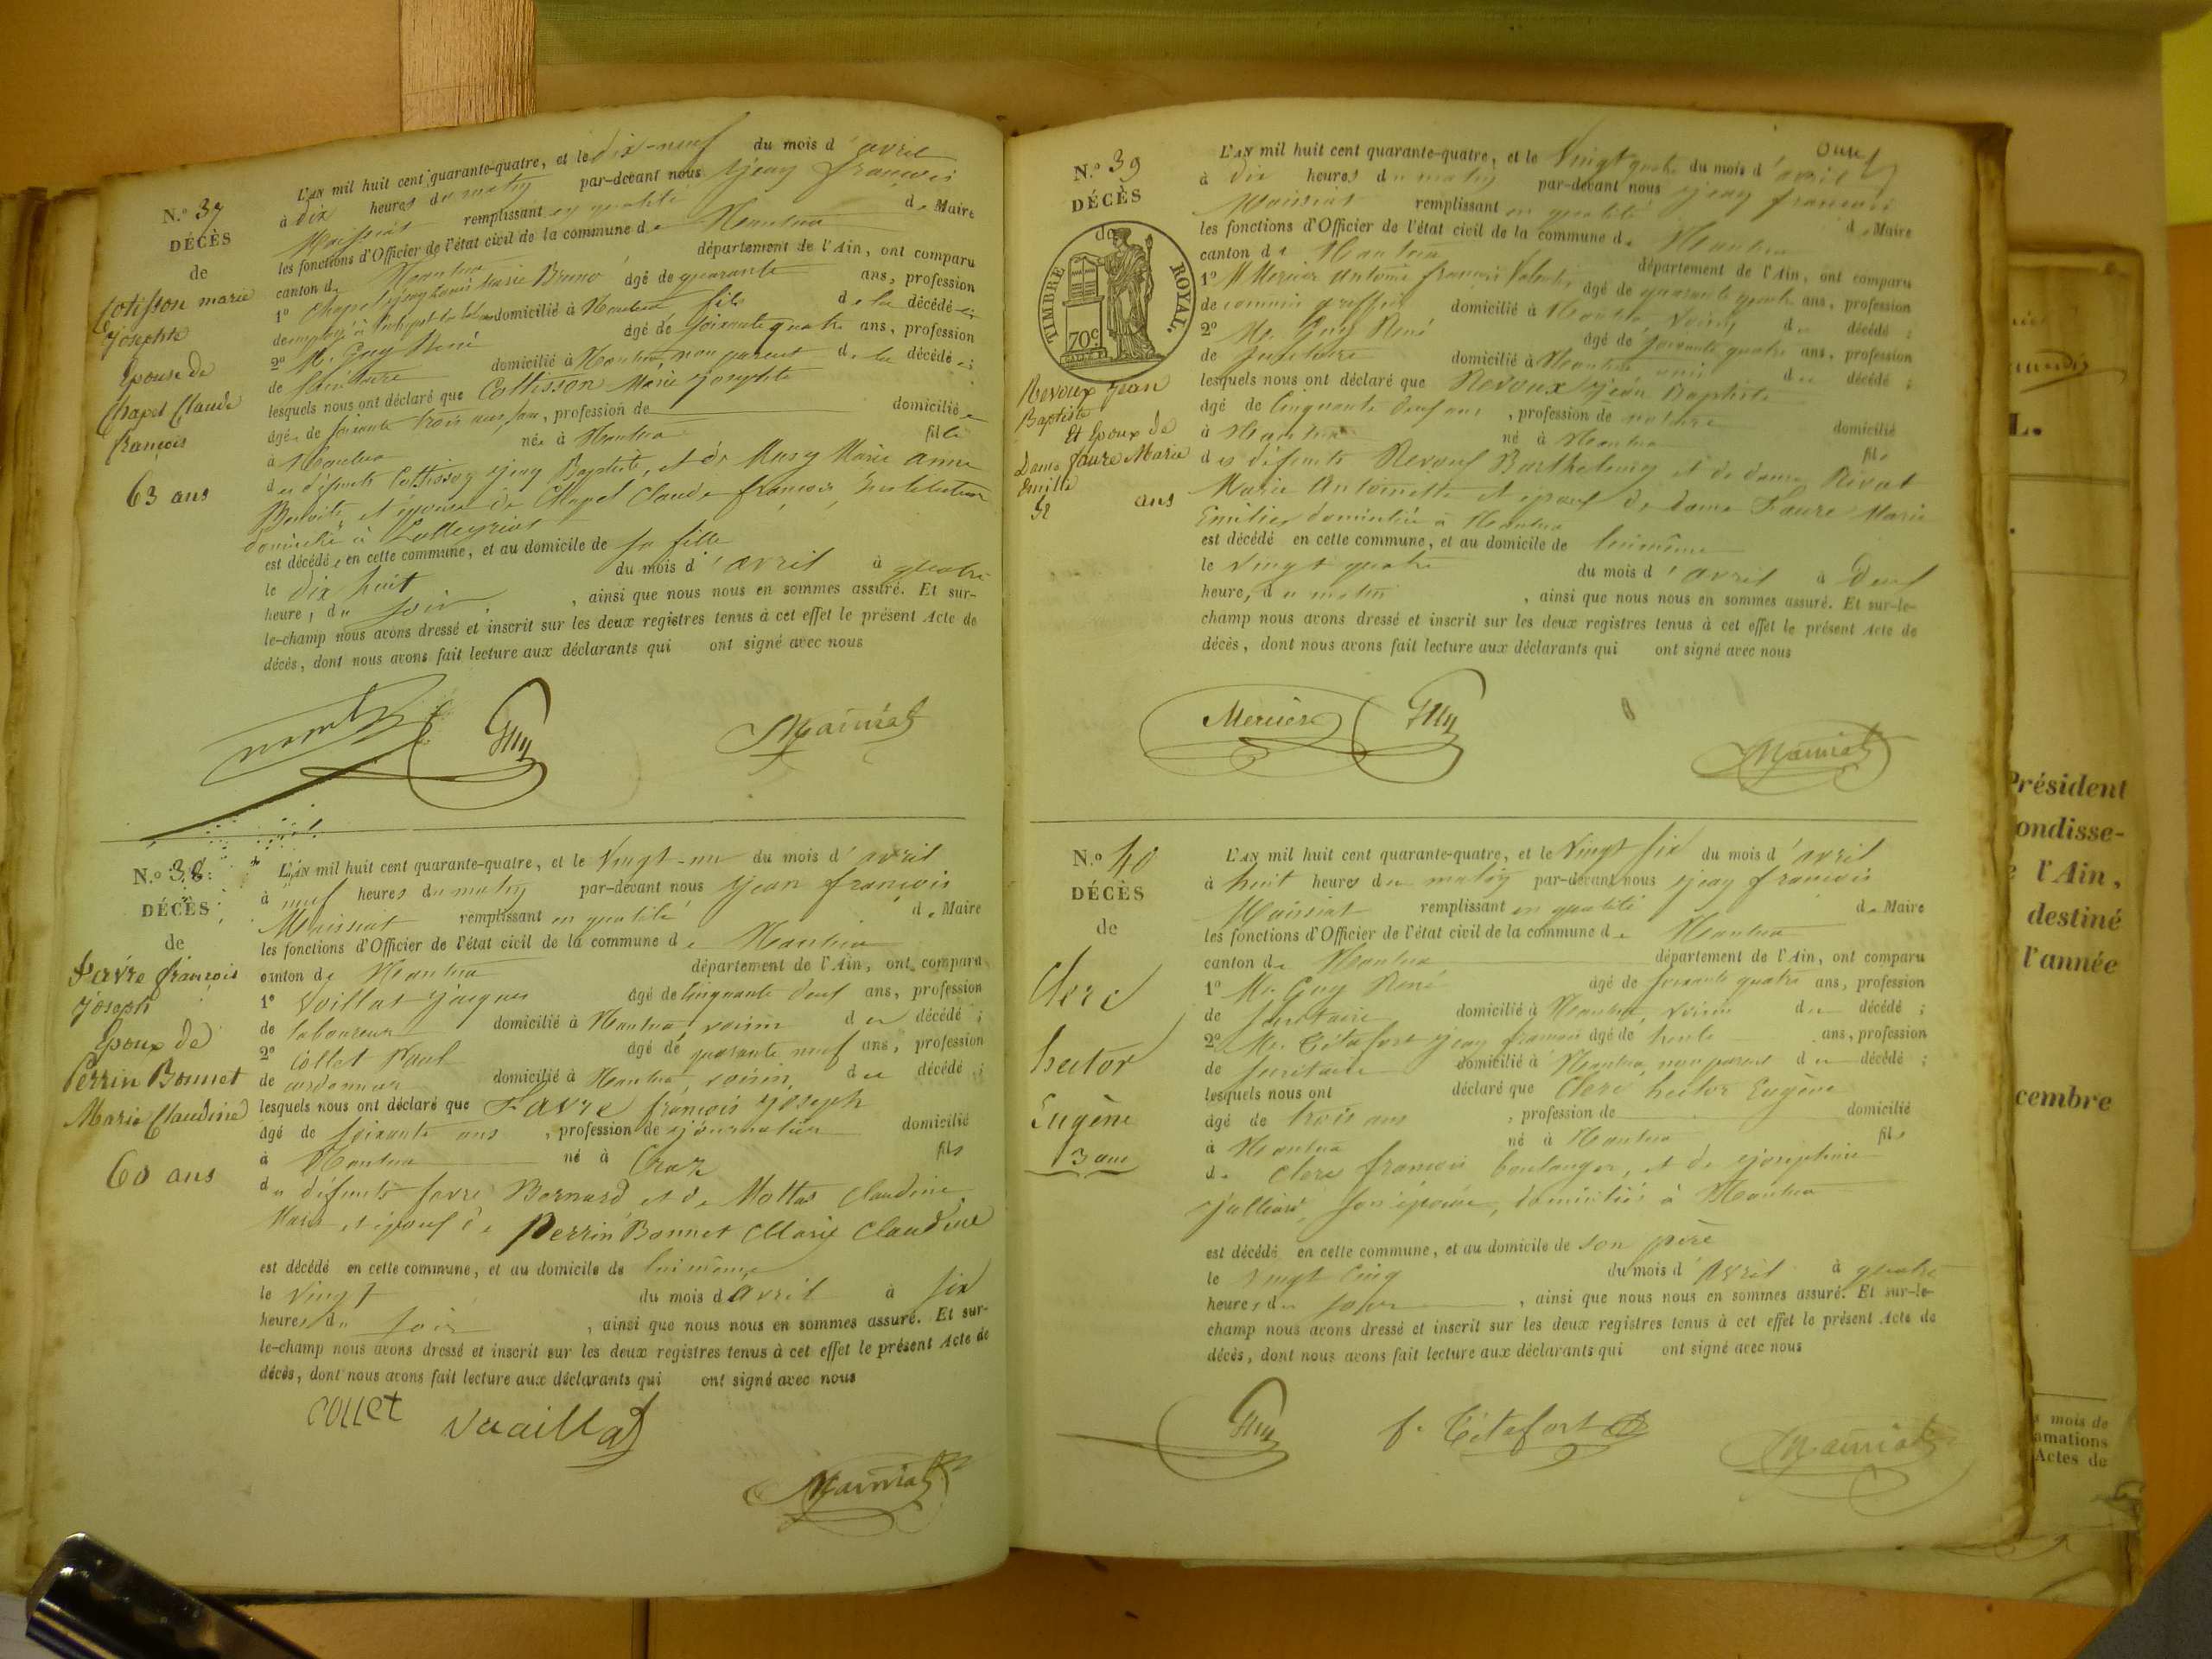 N.º 37
DÉCÈS
de
Cotisson marie
Josephte
Epouse de
Chapel Claude
françois
63 ans
L'AN mil huit cent quarante-quatre, et le dix-neuf du mois d'avril
à dix heures du matin par-devant nous Jean françois
Maissiat remplissant en qualité de Maire
les fonctions d'Officier de l'état civil de la commune de Nantua
canton de Nantua département de l'Ain, ont comparu
1º Chapel Jean Louis Marie Bruno âgé de quarante ans, profession
domicilié à Nantua fils de la décédée ;
2º M. Guy René âgé de soixante quatre ans, profession
de secrétaire domicilié à Nantua non parent de la décédée ;
lesquels nous ont déclaré que Cottisson Marie Josephte
âgée de soixante trois ans, profession de domiciliée
à Nantua née à Nantua fille
des défunts Cottisson Jean Baptiste, et de Musy Marie anne
Benoite, et épouse de Chapel Claude françois, Instituteur
domicilié à Lalleyriat
est décédée en cette commune, et au domicile de sa fille
le dix huit du mois d'avril à quatre
heure, du soir, ainsi que nous nous en sommes assuré. Et sur-
le-champ nous avons dressé et inscrit sur les deux registres tenus à cet effet le présent Acte de
décès, dont nous avons fait lecture aux déclarants qui ont signé avec nous
Guy Maissiat
N.º 38
DÉCÈS
de
Favre françois
Joseph
Epoux de
Perrin Bonnet
Marie Claudine
60 ans
L'AN mil huit cent quarante-quatre, et le vingt-un du mois d'avril
à neuf heures du matin par-devant nous Jean françois
Maissiat remplissant en qualité de Maire
les fonctions d'Officier de l'état civil de la commune de Nantua
canton de Nantua département de l'Ain, ont comparu
1º Voillat Jacques âgé de cinquante deux ans, profession
de laboureur domicilié à Nantua, voisin du décédé ;
2º Collet Paul âgé de quarante neuf ans, profession
de cordonnier domicilié à Nantua, voisin, du décédé ;
lesquels nous ont déclaré que Favre françois Joseph
âgé de soixante ans, profession de journalier domicilié
à Nantua né à Craz fils
du défunts favre Bernard et de Mottas Claudine
Marie et époux de Perrin Bonnet Marie Claudine
est décédé en cette commune, et au domicile de lui même
le vingt du mois d avril à six
heures du soir, ainsi que nous nous en sommes assuré. Et sur-
le-champ nous avons dressé et inscrit sur les deux registres tenus à cet effet le présent Acte de
décès, dont nous avons fait lecture aux déclarants qui ont signé avec nous
collet Vuaillat
Maissiat
N.º 39
DÉCÈS
de
TIMBRE ROYAL.
70c
Revoux Jean
Baptiste
Et Epoux de
Dame faure Marie
Emilie
52 ans
L'AN mil huit cent quarante-quatre, et le vingt quatre du mois d'avril
à dix heures du matin par-devant nous Jean françois
Maissiat remplissant en qualité de Maire
les fonctions d'Officier de l'état civil de la commune de Nantua
canton de Nantua département de l'Ain, ont comparu
1º M Mercier Antoine françois âgé de quarante quatre ans, profession
de commis greffier domicilié à Nantua voisin du décédé ;
2º Mr. Guy René âgé de soixante quatre ans, profession
de secrétaire domicilié à Nantua ami du décédé ;
lesquels nous ont déclaré que Revoux Jean Baptiste
âgé de cinquante deux ans, profession de notaire domicilié
à Nantua né à Nantua fils
des défunts Revoux Barthelemy et de dame Rivat
Marie Antoinette et époux de dame Faure Marie
Emilie domiciliée à Nantua
est décédé en cette commune, et au domicile de lui même
le vingt quatre du mois d'avril à Deux
heure, du matin, ainsi que nous nous en sommes assuré. Et sur-le-
champ nous avons dressé et inscrit sur les deux registres tenus à cet effet le présent Acte de
décès, dont nous avons fait lecture aux déclarants qui ont signé avec nous
Mercier Guy Maissiat
N.º 40
DÉCÈS
de
Clerc
hector
Eugène
3 ans
L'AN mil huit cent quarante-quatre, et le vingt six du mois d'avril
à huit heures du matin par-devant nous Jean francois
Maissiat remplissant en qualité de Maire
les fonctions d'Officier de l'état civil de la commune de Nantua
canton de Nantua département de l'Ain, ont comparu
1º Mr. Guy René âgé de soixante quatre ans, profession
de secrétaire domicilié à Nantua, voisin du décédé ;
2º Mr. Tétafort Jean francois âgé de trente ans, profession
de secrétaire domicilié à Nantua, non parent du décédé ;
lesquels nous ont déclaré que Clerc hector Eugène
âgé de trois ans, profession de domicilié
à Nantua né à Nantua fils
de Clerc francois boulanger, et de Josephine
Julliard, son épouse, domiciliés à Nantua
est décédé en cette commune, et au domicile de son père
le vingt cinq du mois d'Avril à quatre
heures du soir, ainsi que nous nous en sommes assuré. Et sur-le-
champ nous avons dressé et inscrit sur les deux registres tenus à cet effet le présent Acte de
décès, dont nous avons fait lecture aux déclarants qui ont signé avec nous
Guy f. Tétafort Maissiat
L.
Président
ondisse-
l'Ain,
destiné
l'année
cembre
mois de
amations
Actes de